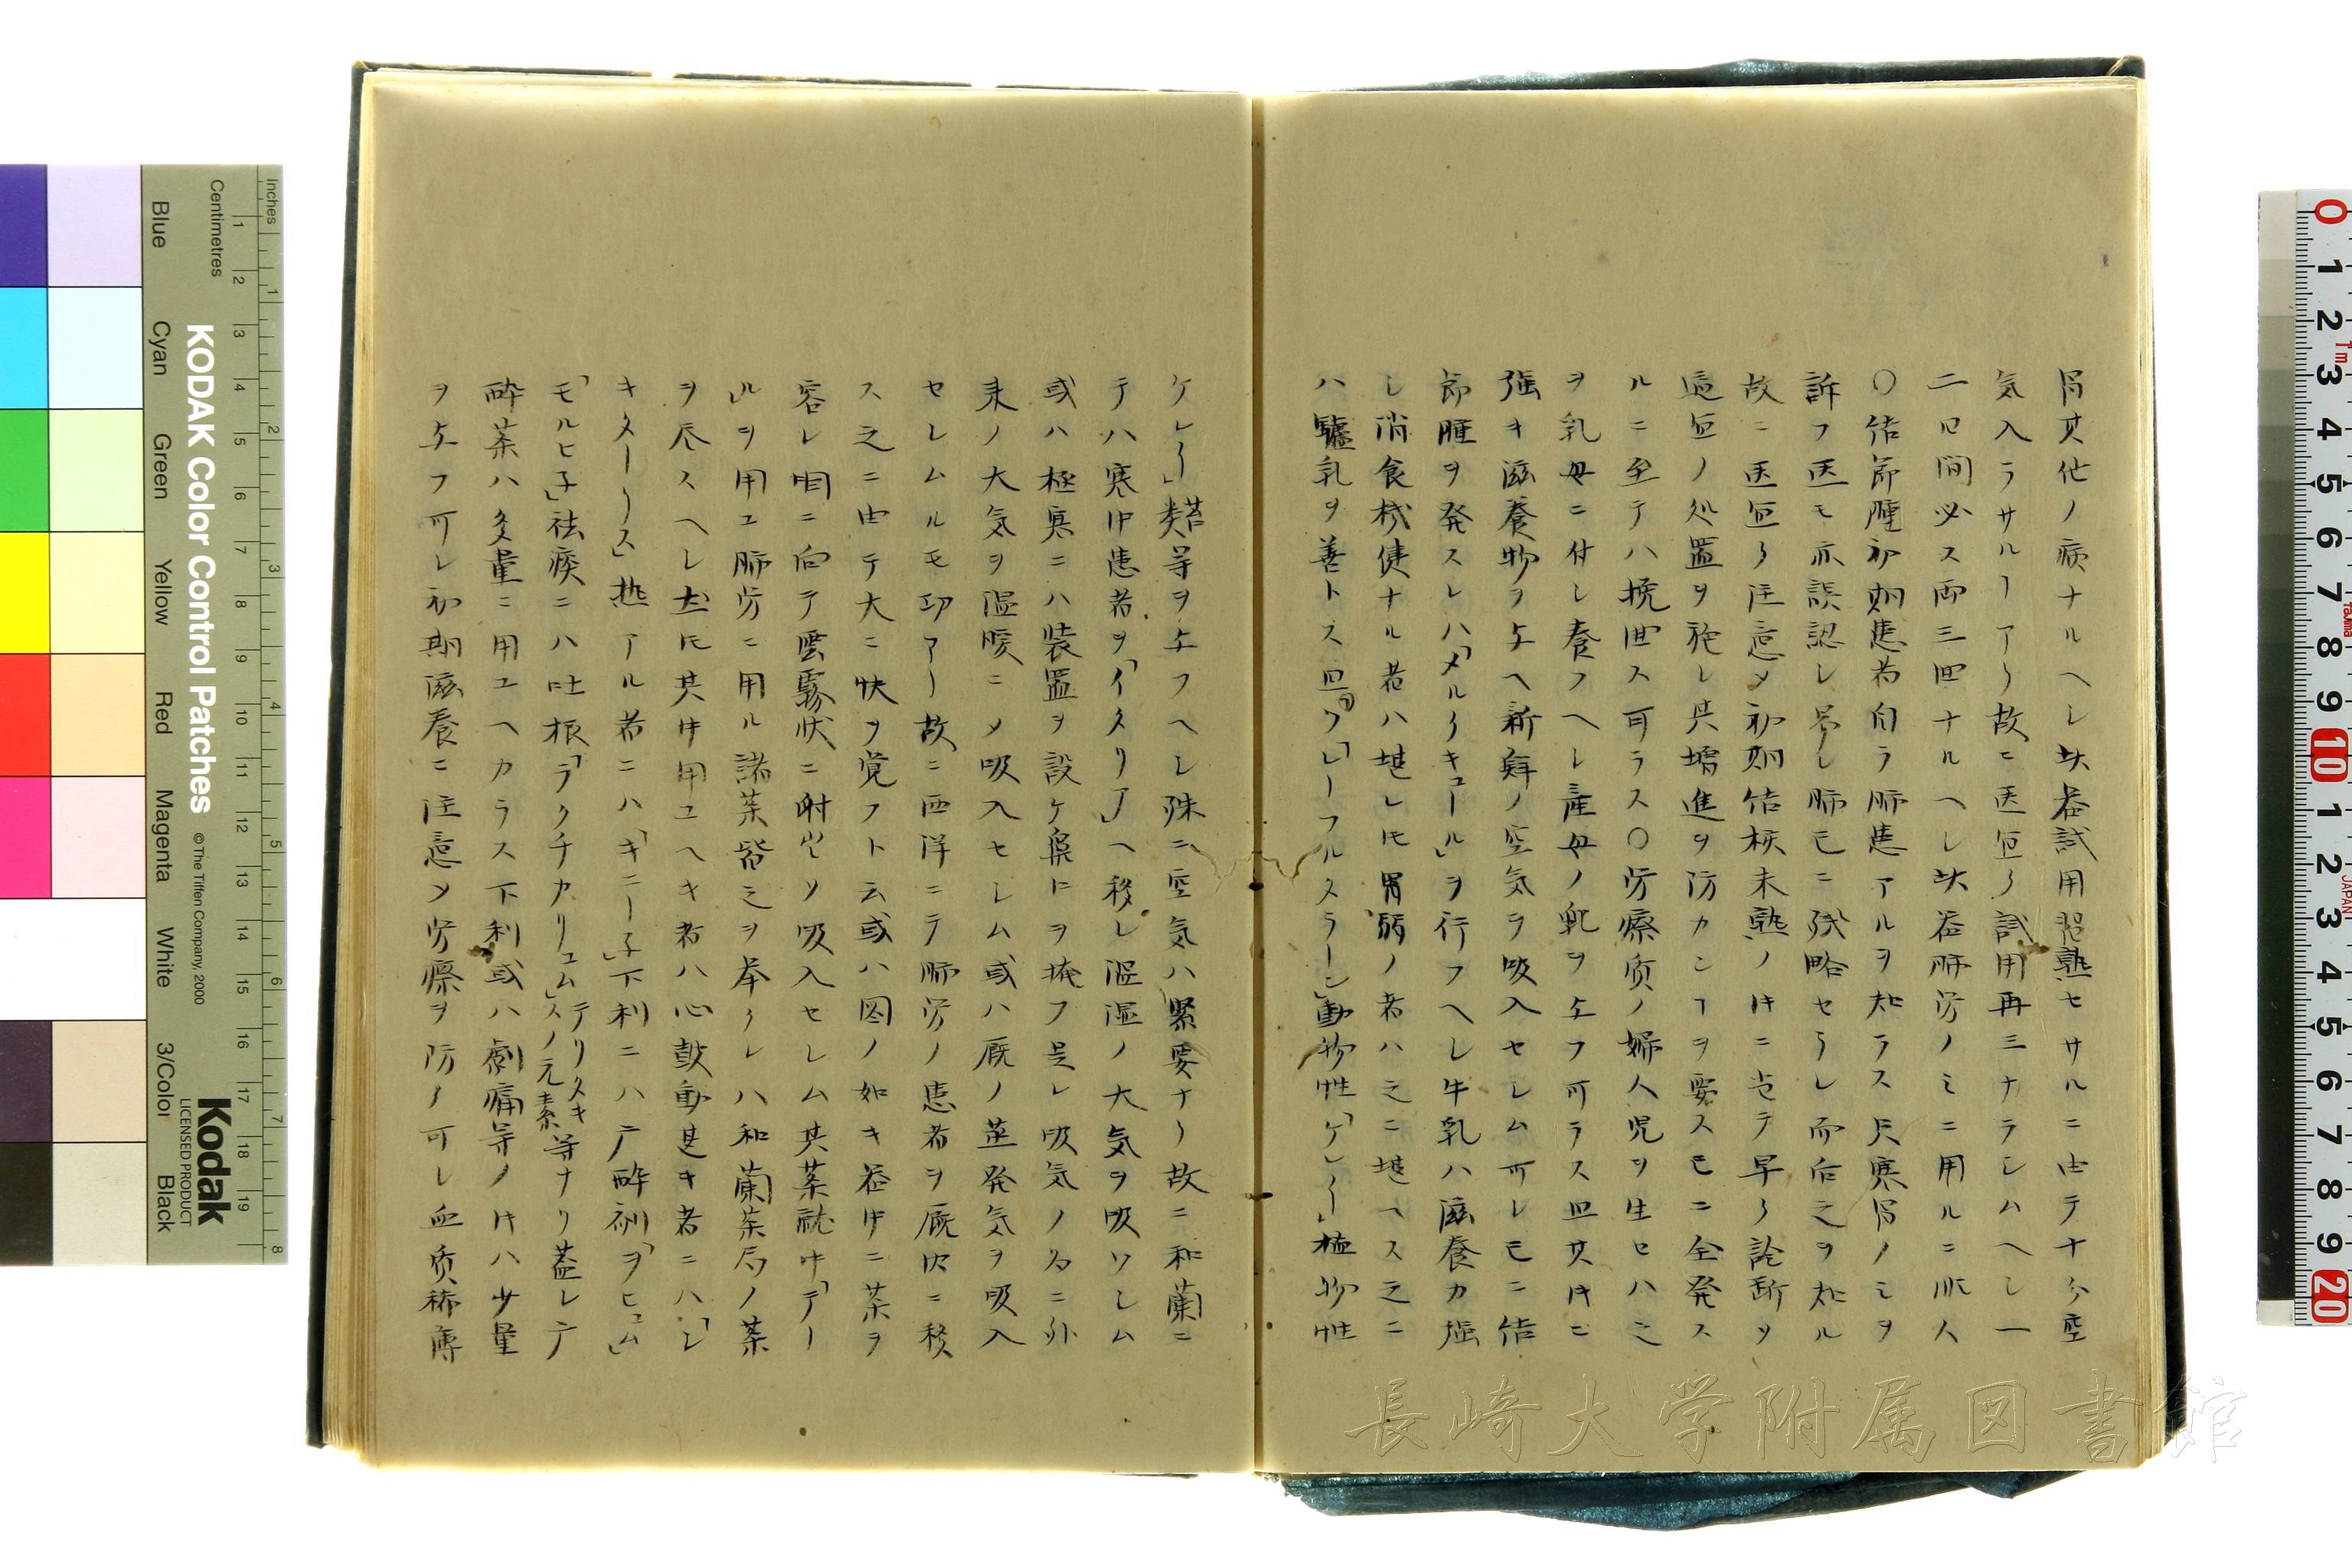 冐其他ノ病ナルヘシ此器試用習熟セサルニ由テ十分空
気入ラサルヿアリ故ニ医宜ク試用再三ナラシムヘシ一
二口間必ス両三回ナルヘシ此器肺労ノミニ用ルニ非ス
〇結節腫初期患者自ラ肺患アルヲ知ラス只寒冐ノミヲ
訴フ医モ亦誤認シ易シ肺已ニ残略セラレ而后之ヲ知ル
故ニ医宜ク注意メ初期結核未熟ノ時ニ当テ早ク診断ソ
適宜ノ処置ヲ施シ其増進ヲ防カンヿヲ要ス已ニ全発ス
ルニ至テハ挽回ス可ラス〇労療质ノ婦人児ヲ生セハ之
ヲ乳母ニ付シ養フヘシ産母ノ乳ヲ与フ可ラス且其时ニ
強キ滋養物ヲ与ヘ新鮮ノ空気ヲ吸入セシム可シ已ニ結
節腫ヲ発スレハ「メルクキュール」ヲ行フヘシ牛乳ハ滋養力強
シ消食機健ナル者ハ堪レ㲼胃弱ノ者ハ之ニ堪ヘス之ニ
ハ驢乳ヲ善トス且ワ「レーフルスラーン」動物性「ケレイ」植物性
ケレイ」類苔等ヲ与フヘシ殊ニ空気ハ緊要ナリ故ニ和蘭ニ
テハ寒中患者ヲ「イタリア」ヘ移シ温湿ノ大気ヲ吸ワシム
或ハ極寒ニハ装置ヲ設ケ鼻口ヲ掩フ是レ吸気ノ為ニ外
来ノ大気ヲ温暖ニメ吸入セシム或ハ厩ノ蒸発気ヲ吸入
セシムルモ功アリ故ニ西洋ニテ肺労ノ患者ヲ厩内ニ移
ス之ニ由テ大ニ快ヲ覚フト云或ハ図ノ如キ器中ニ茶ヲ
容レ咽ニ向テ雲霧状ニ射出ソ吸入セシム其薬就中「テー
ル」ヲ用ユ肺労ニ用ル諸薬皆之ヲ挙クレハ和蘭薬局ノ薬
ヲ尽スヘシ尤㲼其中用ユヘキ者ハ心鼓動甚キ者ニハ「シ
キターリス」熱アル者ニハ「キニー子」下利ニハ广酔剤「ヲヒュム」
「モルヒ子」祛痰ニハ吐根「ラクチカリュム」テリタキスノ元素等ナリ蓋シ广
酔薬ハ多量ニ用ユヘカラス下利或ハ劇痛等ノ时ハ少量
ヲ与フ可シ初期滋養ニ注意メ労療ヲ防ク可シ血质稀薄
長崎大学附属図書館
KODAK Color Control Patches
© The Tiffen Company, 2000
Kodak
LICENSED PRODUCT
Inches
Centimetres
Blue
Cyan
Green
Yellow
Red
Magenta
White
3/Color
Black